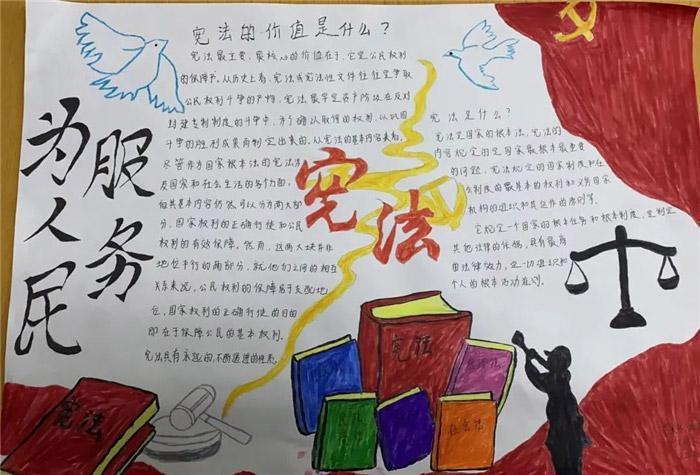 宪法的价值是什么?
宪法最主要、最核心的价值在于,它是公民权利
的保障书。从历史上看,宪法或宪法性文件往往是争取
公民权利斗争的产物,宪法最早是资产阶级在反对
封建专制制度的斗争中,为了确认取得的权利,以巩固
斗争的胜利成果而制定出来的。从宪法的基本内容来看,
尽管作为国家根本法的宪法涉
及国家和社会生活的各个方面,
但其基本内容仍然可以分为两大部
分,国家权利的正确行使和公民
权利的有效保障。然而,这两大块并非
地位平行的两部分,就他们之间的相互
关系来说,公民权利的保障居于支配地
位,国家权利的正确行使的目的
即在于保障公民的基本权利。
宪法具有永恒的,不断追逐的性质。
宪法是什么?
宪法是国家的根本法,宪法的
内容规定的是国家最根本最重要
的问题,宪法规定的国家制度和社
会制度的最基本的权利和义务国家
机构的组织和其运作的原则等。
它规定一个国家的根本任务和根本制度,是制定
其他法律的依据,具有最高
的法律效力,是一切组织和
个人的根本活动准则。
为人民
服务
宪法
宪法
宪法